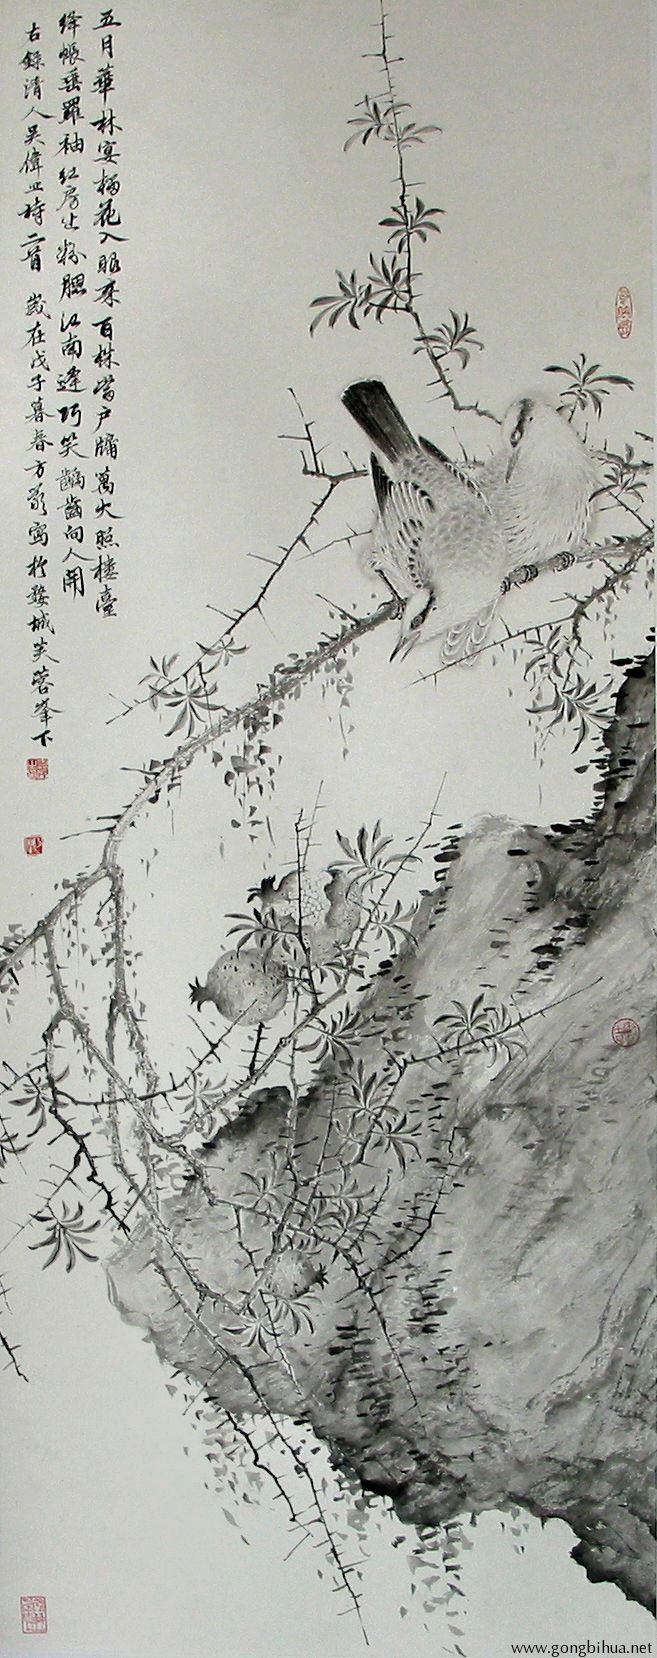 五月華林宴榴花入眼來百株當户牖萬火照樓臺
絳帳垂羅袖紅房出粉腮江南逢巧笑齲齒向人開
右錄清人吴偉业詩二首 歲在戊子暮春方寫於婺城芙蓉峯下
www.gongbihua.net